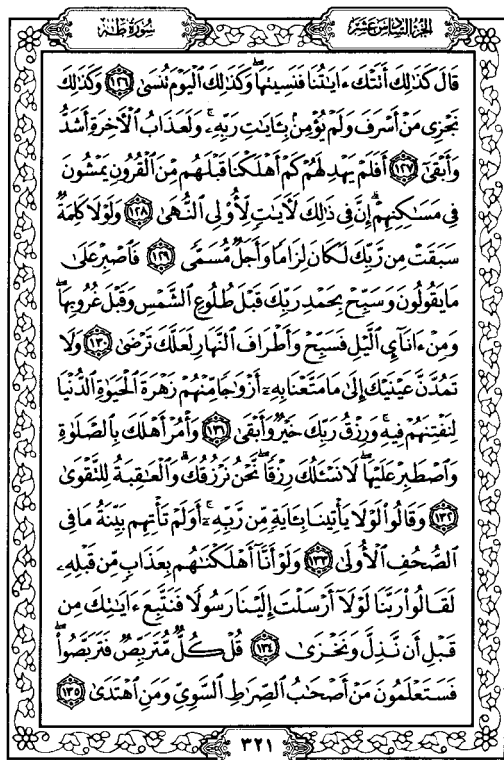 سُورَةُ طه
الجُزْءُ السَّادِسَ عَشَرَ
قَالَ كَذَٰلِكَ أَتَتْكَ ءَايَٰتُنَا فَنَسِيتَهَا ۖ وَكَذَٰلِكَ ٱلْيَوْمَ تُنسَىٰ ﴿١٢٦﴾ وَكَذَٰلِكَ
نَجْزِى مَنْ أَسْرَفَ وَلَمْ يُؤْمِنۢ بِـَٔايَٰتِ رَبِّهِۦ ۚ وَلَعَذَابُ ٱلْءَاخِرَةِ أَشَدُّ
وَأَبْقَىٰٓ ﴿١٢٧﴾ أَفَلَمْ يَهْدِ لَهُمْ كَمْ أَهْلَكْنَا قَبْلَهُم مِّنَ ٱلْقُرُونِ يَمْشُونَ
فِى مَسَٰكِنِهِمْ ۗ إِنَّ فِى ذَٰلِكَ لَءَايَٰتٍ لِّأُو۟لِى ٱلنُّهَىٰ ﴿١٢٨﴾ وَلَوْلَا كَلِمَةٌ
سَبَقَتْ مِن رَّبِّكَ لَكَانَ لِزَامًا وَأَجَلٌ مُّسَمًّى ﴿١٢٩﴾ فَٱصْبِرْ عَلَىٰ
مَا يَقُولُونَ وَسَبِّحْ بِحَمْدِ رَبِّكَ قَبْلَ طُلُوعِ ٱلشَّمْسِ وَقَبْلَ غُرُوبِهَا ۖ
وَمِنْ ءَانَآئِ ٱلَّيْلِ فَسَبِّحْ وَأَطْرَافَ ٱلنَّهَارِ لَعَلَّكَ تَرْضَىٰ ﴿١٣٠﴾ وَلَا
تَمُدَّنَّ عَيْنَيْكَ إِلَىٰ مَا مَتَّعْنَا بِهِۦٓ أَزْوَٰجًا مِّنْهُمْ زَهْرَةَ ٱلْحَيَوٰةِ ٱلدُّنْيَا
لِنَفْتِنَهُمْ فِيهِ ۚ وَرِزْقُ رَبِّكَ خَيْرٌ وَأَبْقَىٰ ﴿١٣١﴾ وَأْمُرْ أَهْلَكَ بِٱلصَّلَوٰةِ
وَٱصْطَبِرْ عَلَيْهَا ۖ لَا نَسْـَٔلُكَ رِزْقًا ۖ نَّحْنُ نَرْزُقُكَ ۗ وَٱلْعَٰقِبَةُ لِلتَّقْوَىٰ
﴿١٣٢﴾ وَقَالُوا۟ لَوْلَا يَأْتِينَا بِـَٔايَةٍ مِّن رَّبِّهِۦٓ ۚ أَوَلَمْ تَأْتِهِم بَيِّنَةُ مَا فِى
ٱلصُّحُفِ ٱلْأُولَىٰ ﴿١٣٣﴾ وَلَوْ أَنَّآ أَهْلَكْنَٰهُم بِعَذَابٍ مِّن قَبْلِهِۦ
لَقَالُوا۟ رَبَّنَا لَوْلَآ أَرْسَلْتَ إِلَيْنَا رَسُولًا فَنَتَّبِعَ ءَايَٰتِكَ مِن
قَبْلِ أَن نَّذِلَّ وَنَخْزَىٰ ﴿١٣٤﴾ قُلْ كُلٌّ مُّتَرَبِّصٌ فَتَرَبَّصُوا۟ ۖ
فَسَتَعْلَمُونَ مَنْ أَصْحَٰبُ ٱلصِّرَٰطِ ٱلسَّوِىِّ وَمَنِ ٱهْتَدَىٰ ﴿١٣٥﴾
٣٢١